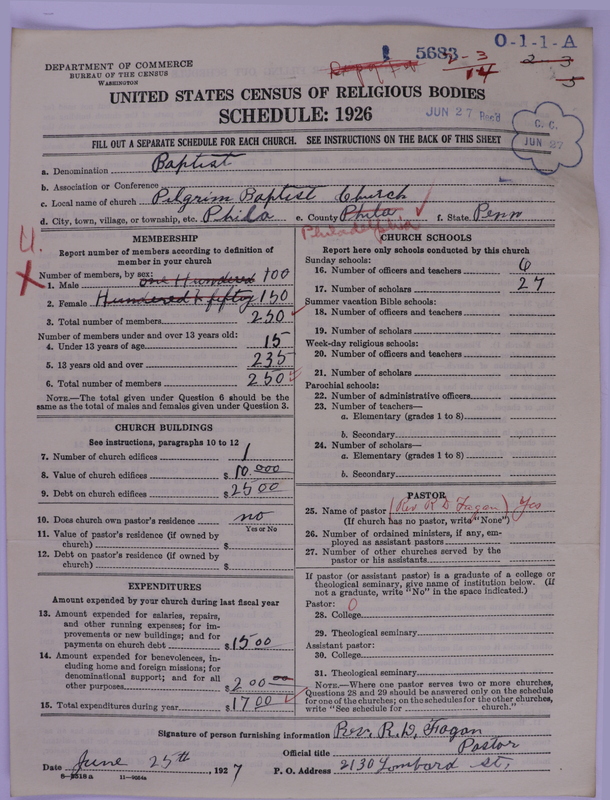 DEPARTMENT OF COMMERCE
BUREAU OF THE CENSUS
WASHINGTON
1 5683
8-3
14
0-1-1-A
2-3
5
UNITED STATES CENSUS OF RELIGIOUS BODIES
SCHEDULE: 1926
JUN 27 Rec'd
C. C.
JUN 27
FILL OUT A SEPARATE SCHEDULE FOR EACH CHURCH. SEE INSTRUCTIONS ON THE BACK OF THIS SHEET
a. Denomination Baptist
b. Association or Conference
c. Local name of church Pilgrim Baptist Church
d. City, town, village, or township, etc. Phila e. County Phila f. State Penn
Philadelphia
4.
X
MEMBERSHIP
Report number of members according to definition of member in your church
Number of members, by sex:
1. Male one Hundered 100
2. Female Hundered & fifty 150
3. Total number of members 250
Number of members under and over 13 years old:
4. Under 13 years of age 15
5. 13 years old and over 235
6. Total number of members 250
NOTE.—The total given under Question 6 should be the same as the total of males and females given under Question 3.
CHURCH BUILDINGS
See instructions, paragraphs 10 to 12
7. Number of church edifices 1
8. Value of church edifices $10,000
9. Debt on church edifices $2500
10. Does church own pastor's residence no
Yes or No
11. Value of pastor's residence (if owned by church) $
12. Debt on pastor's residence (if owned by church) $
EXPENDITURES
Amount expended by your church during last fiscal year
13. Amount expended for salaries, repairs, and other running expenses; for improvements or new buildings; and for payments on church debt $1500
14. Amount expended for benevolences, including home and foreign missions; for denominational support; and for all other purposes $200 00
15. Total expenditures during year $1700
CHURCH SCHOOLS
Report here only schools conducted by this church
Sunday schools:
16. Number of officers and teachers 6
17. Number of scholars 27
Summer vacation Bible schools:
18. Number of officers and teachers
19. Number of scholars
Week-day religious schools:
20. Number of officers and teachers
21. Number of scholars
Parochial schools:
22. Number of administrative officers
23. Number of teachers—
a. Elementary (grades 1 to 8)
b. Secondary
24. Number of scholars—
a. Elementary (grades 1 to 8)
b. Secondary
PASTOR
25. Name of pastor (Rev R D Fagan) Yes
(If church has no pastor, write "None")
26. Number of ordained ministers, if any, employed as assistant pastors
27. Number of other churches served by the pastor or his assistants
If pastor (or assistant pastor) is a graduate of a college or theological seminary, give name of institution below. (If not a graduate, write "No" in the space indicated.)
Pastor: 0
28. College
29. Theological seminary
Assistant pastor:
30. College
31. Theological seminary
NOTE.—Where one pastor serves two or more churches, Questions 28 and 29 should be answered only on the schedule for one of the churches; on the schedules for the other churches, write "See schedule for church."
Signature of person furnishing information Rev. R. D. Fagan
Official title Pastor
Date June 25th, 1927 P. O. Address 2130 Lombard St,
8-3318a 11-9064a